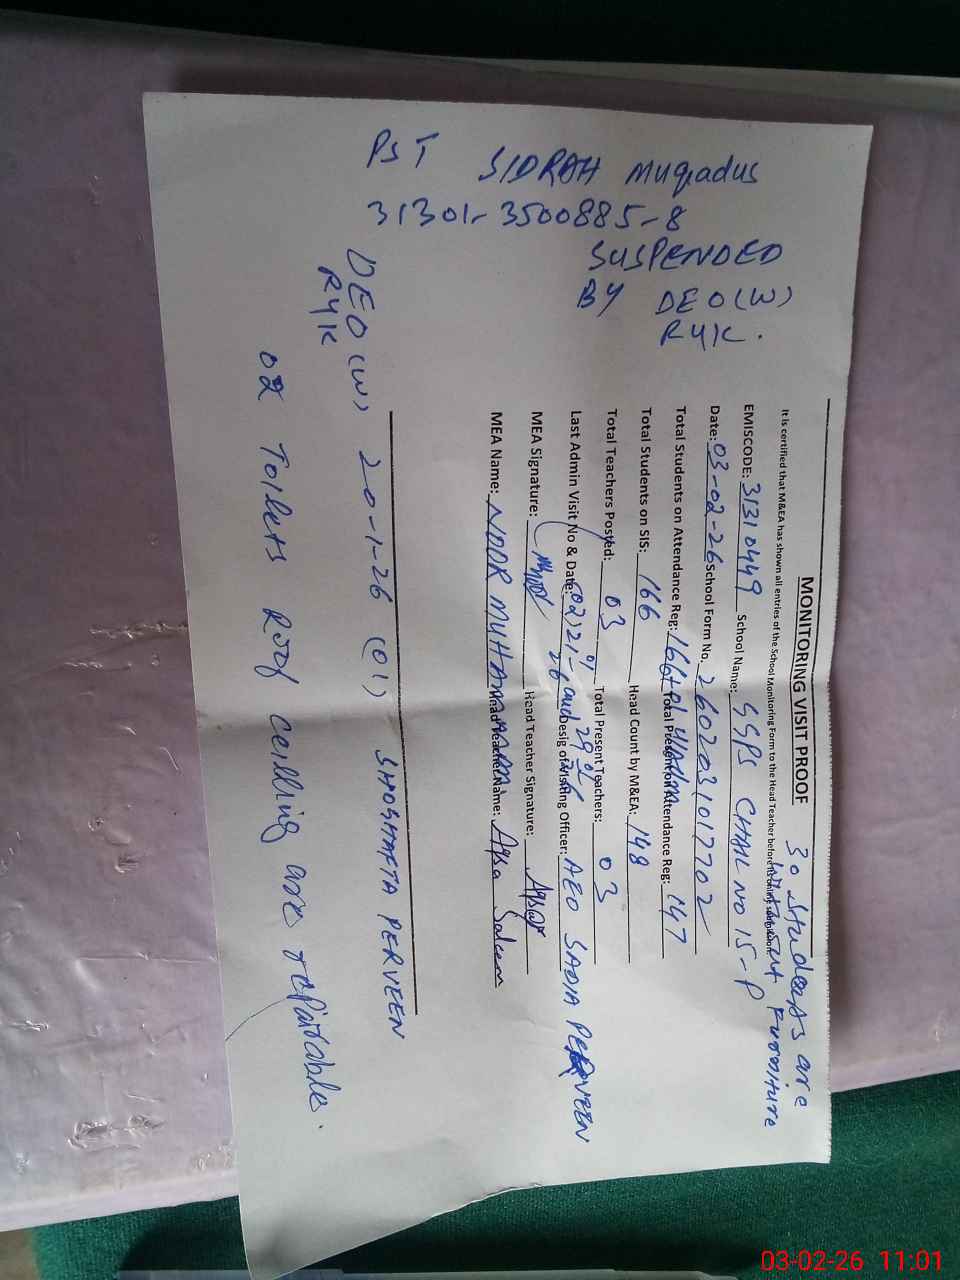 PST SIDRAH Muqadus
31301-3500885-8
SUSPENDED
BY DEO(W)
RYK.
MONITORING VISIT PROOF
30 Students are
without Furniture
It is certified that M&EA has shown all entries of the School Monitoring Form to the Head Teacher before its online submission.
EMISCODE: 31310449 School Name: GGPS CHAK NO 15-P
Date: 03-02-26 School Form No. 2602031017702
Total Students on Attendance Reg: 166 Total Present on Attendance Reg: 147
Total Students on SIS: 166 Head Count by M&EA: 148
Total Teachers Posted: 03 Total Present Teachers: 03
Last Admin Visit No & Date: (02) 21-01-26 and 29 Desig of Visiting Officer: AEO SADIA PERVEEN
MEA Signature: Head Teacher Signature: Aqsa
MEA Name: NOOR MUHAMMAD Head Teacher Name: Aqsa Saleem
DEO(W) 20-1-26 (01) SHOGHAFTA PERVEEN
RYK
02 Toilets Roof ceilling are repairable.
03-02-26 11:01